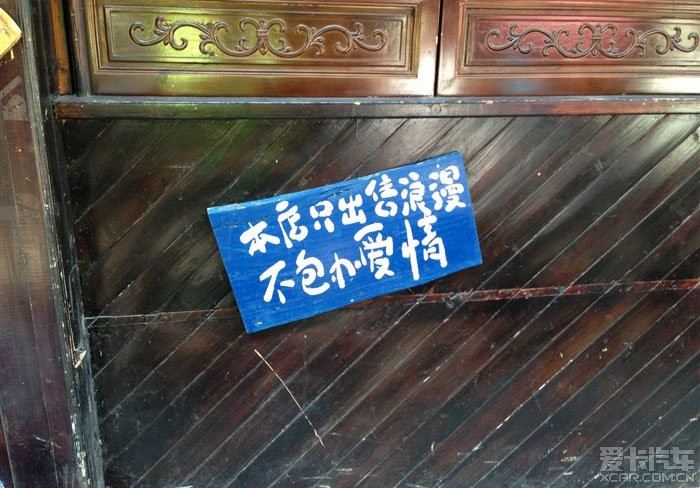 本店只出售浪漫
不包办爱情
爱卡汽车
XCAR.COM.CN